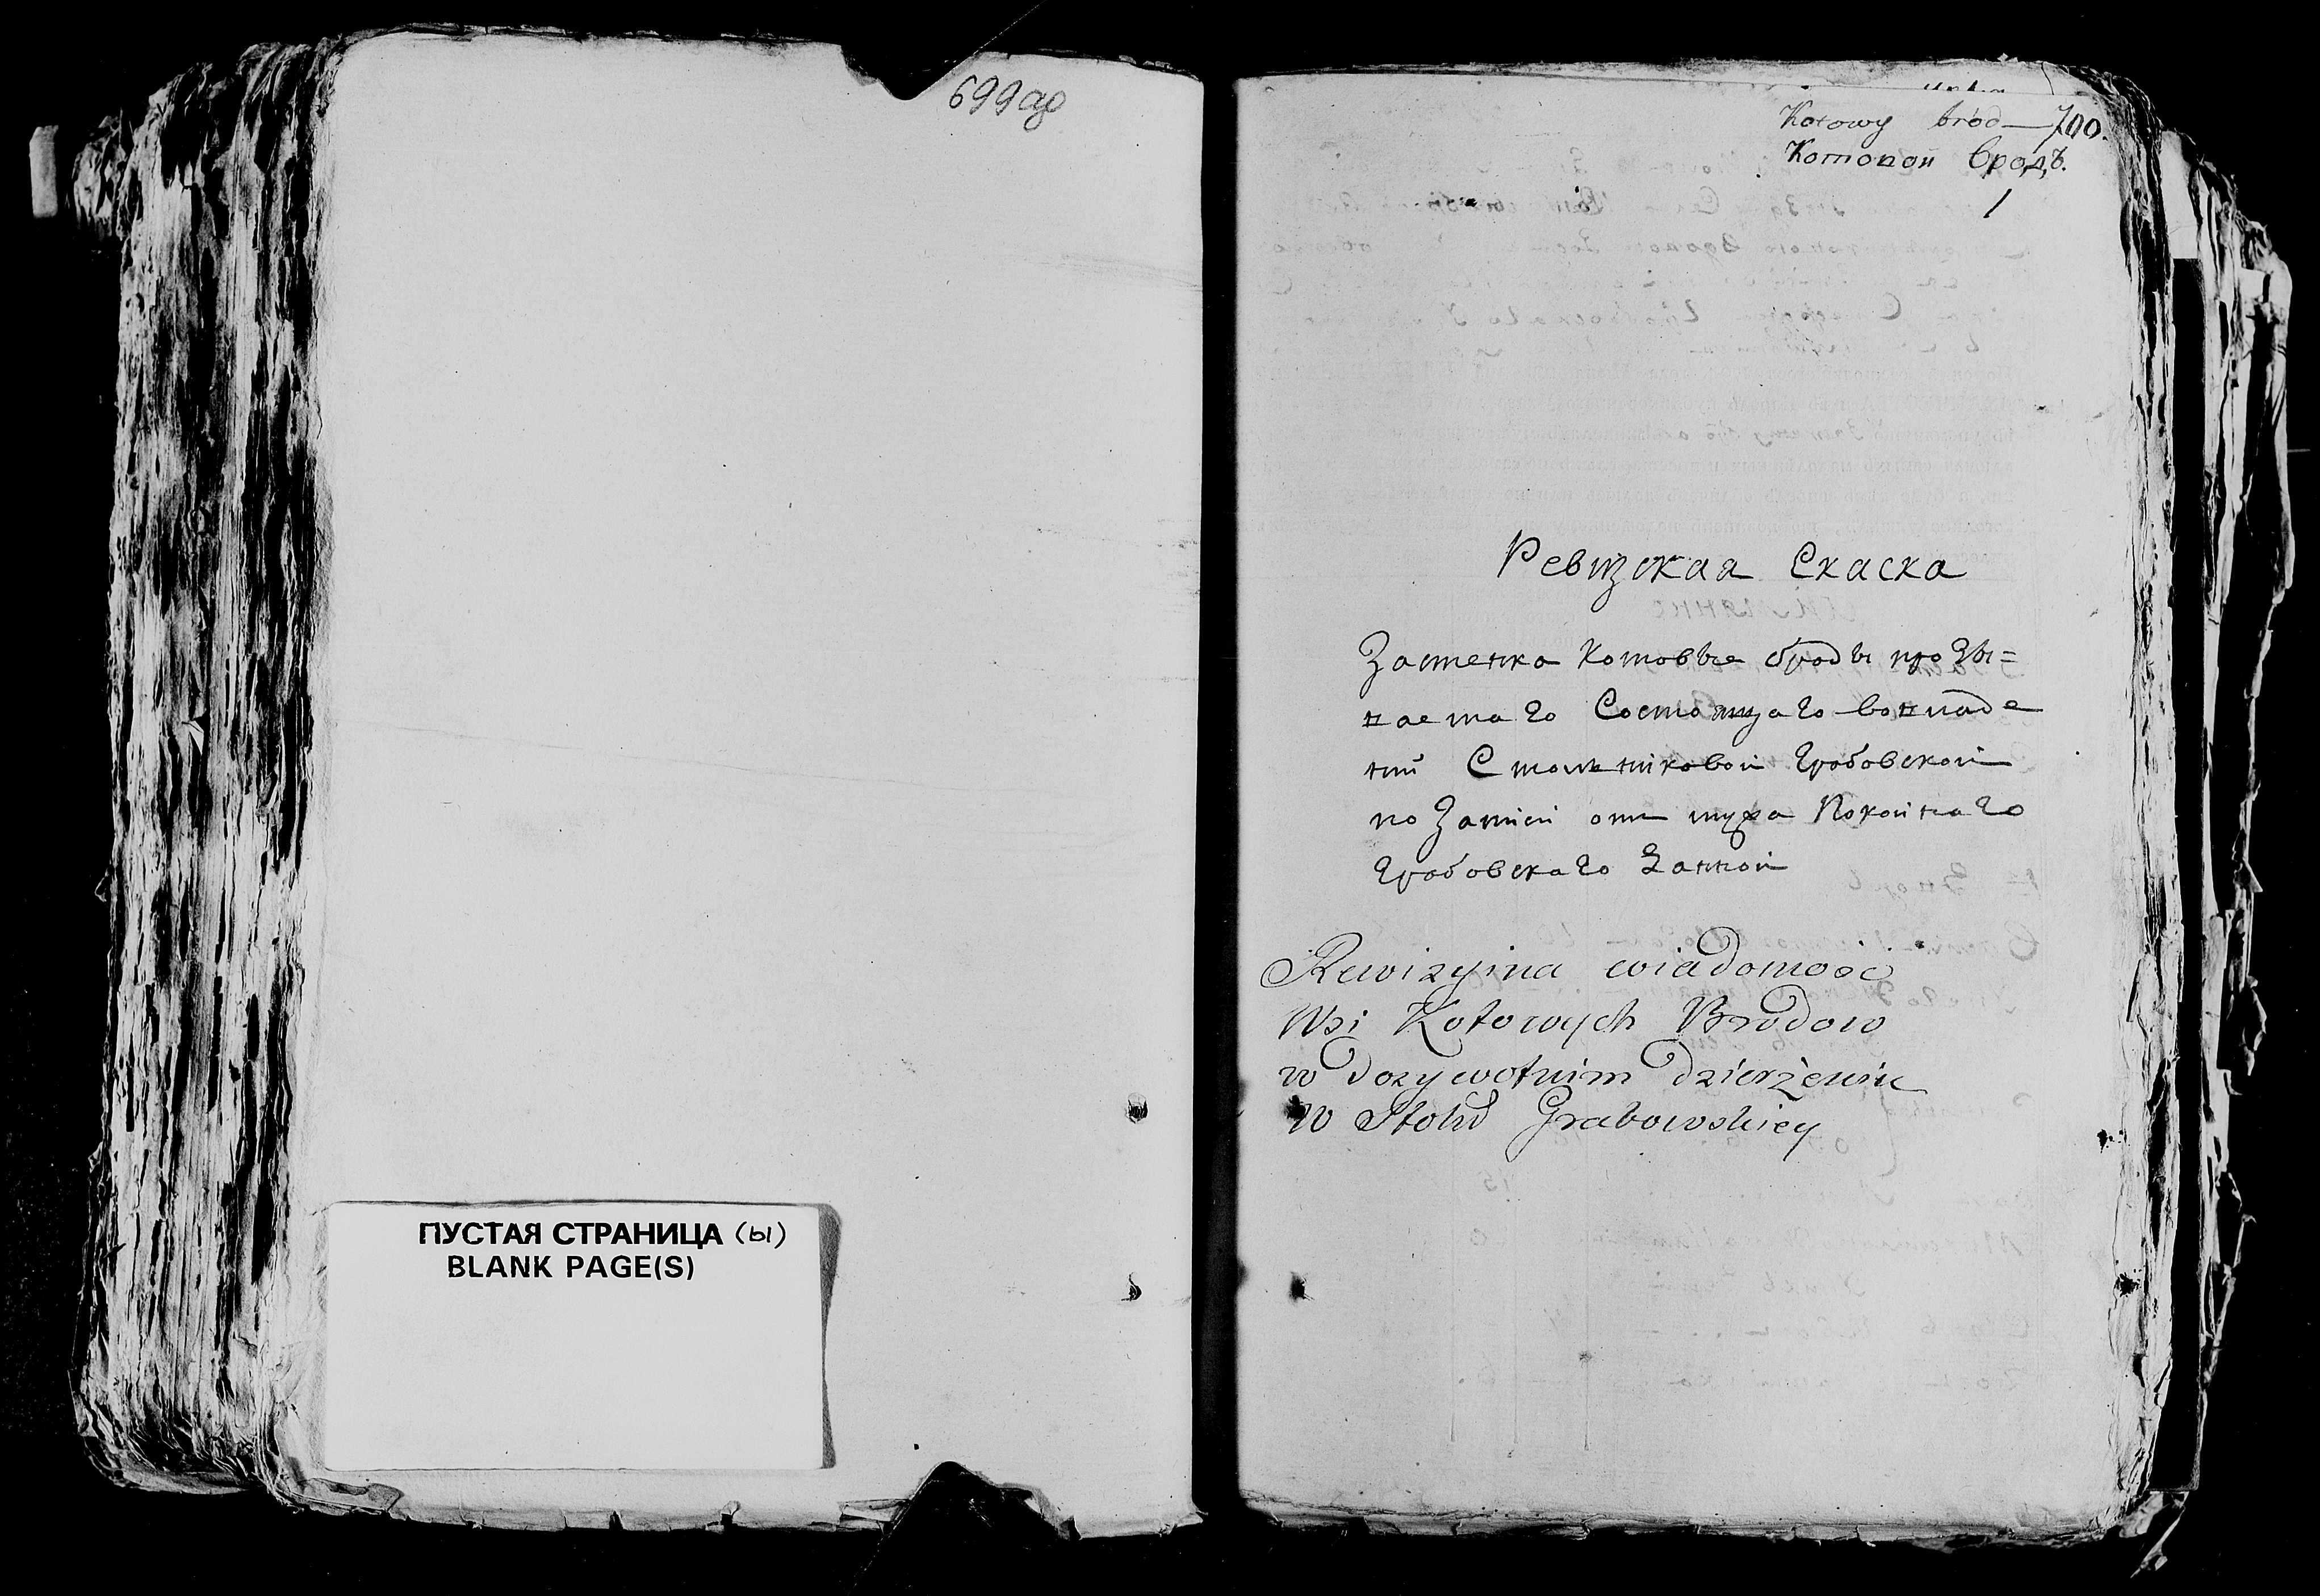 699 об
ПУСТАЯ СТРАНИЦА (ы)
BLANK PAGE(S)
Kotowy bród — 700.
Котовой бродъ.
1
Ревизская Скаска
Застенка Котовые броды прозы=
ваемаго Состоящаго во владе
нии Стольниковой Грабовской
по Записи от мужа Покойнаго
Грабовскаго Данной
Rewizyina wiadomość
Wsi Kotowych Brodow
w dozywotnim dzierżeniu
W Stolni Grabowskiey